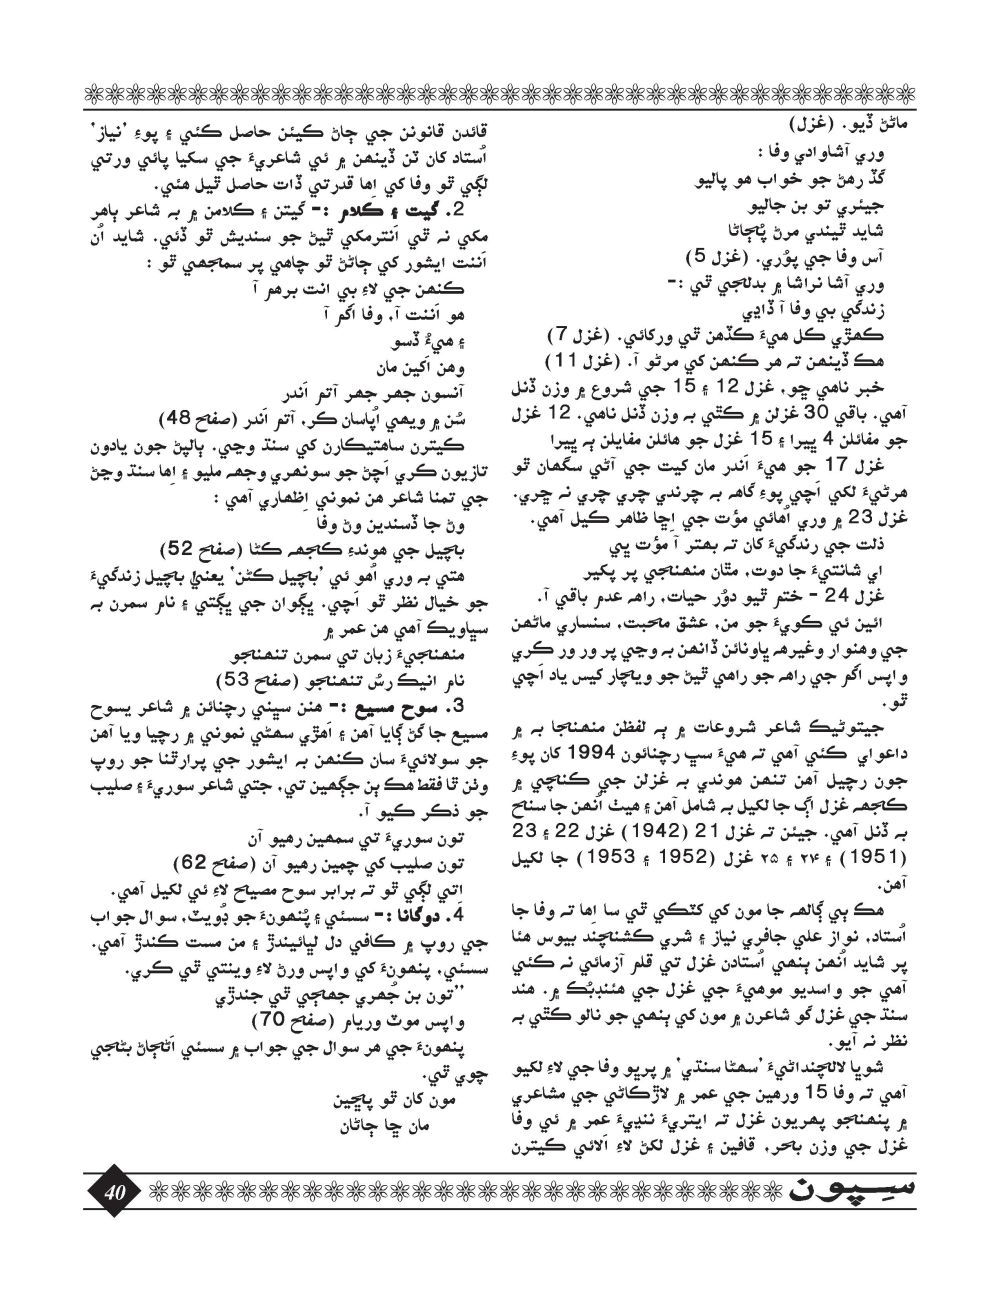 ماڻڻ ڏيو. (غزل)
وري آشاوادي وفا :
گڏ رهڻ جو خواب هو پاليو
جيئري تو بن جاليو
شايد ٿيندي مرڻ پُڄاڻا
آس وفا جي پوُري. (غزل 5)
وري آشا نراشا ۾ بدلجي ٿي :-
زندگي بي وفا آ ڏاڍي
ڪهڙي ڪل هيءَ ڪڏهن ٿي ورڪائي. (غزل 7)
هڪ ڏينهن ته هر ڪنهن کي مرڻو آ. (غزل 11)
خبر ناهي ڇو، غزل 12 ۽ 15 جي شروع ۾ وزن ڏنل
آهي. باقي 30 غزلن ۾ ڪٿي به وزن ڏنل ناهي. 12 غزل
جو مفائلن 4 ڀيرا ۽ 15 غزل جو هائلن مفايلن ٻه ڀيرا
غزل 17 جو هيءَ اَندر مان کيت جي آڻي سگهان ٿو
هرڻيءَ لکي اَچي پوءِ گاهه به چرندي چري چري نه چري.
غزل 23 ۾ وري اُهائي موُت جي اِڇا ظاهر ڪيل آهي.
ذلت جي زندگيءَ کان ته بهتر آ موُت ڀي
اي شانتيءَ جا دوت، مٿان منهنجي پر پکير
غزل 24 - ختم ٿيو دوُر حيات، راهه عدم باقي آ.
ائين ئي ڪويءَ جو من، عشق محبت، سنساري ماڻهن
جي وهنوار وغيرهه ڀاونائن ڏانهن به وڃي پر ور ور ڪري
واپس اگم جي راهه جو راهي ٿيڻ جو ويچار کيس ياد اَچي
ٿو.
جيتوڻيڪ شاعر شروعات ۾ ٻه لفظن منهنجا به ۾
داعواي ڪئي آهي ته هيءَ سڀ رچنائون 1994 کان پوءِ
جون رچيل آهن تنهن هوندي به غزلن جي ڪنڃي ۾
ڪجهه غزل اڳ جا لکيل به شامل آهن ۽ هيٺ اُنهن جا سنح
به ڏنل آهي. جيئن ته غزل 21 (1942) غزل 22 ۽ 23
(1951) ۽ ۲۴ ۽ ۲۵ غزل (1952 ۽ 1953) جا لکيل
آهن.
هڪ ٻي ڳالهه جا مون کي کٽڪي ٿي سا اها ته وفا جا
اُستاد، نواز علي جافري نياز ۽ شري ڪشنچند بيوس هئا
پر شايد اُنهن ٻنهي اُستادن غزل تي قلم آزمائي نه ڪئي
آهي جو واسديو موهيءَ جي غزل جي هئنڊبُڪ ۾. هند
سنڌ جي غزل گو شاعرن ۾ مون کي ٻنهي جو نالو ڪٿي به
نظر نه آيو.
شوڀا لالچنداڻيءَ ’سهڻا سنڌي‘ ۾ پرڀو وفا جي لاءِ لکيو
آهي ته وفا 15 ورهين جي عمر ۾ لاڙڪاڻي جي مشاعري
۾ پنهنجو پهريون غزل ته ايتريءَ ننڍيءَ عمر ۾ ئي وفا
غزل جي وزن بحر، قافين ۽ غزل لکڻ لاءِ اَلائي ڪيترن
قائدن قانونن جي ڄاڻ ڪيئن حاصل ڪئي ۽ پوءِ ’نياز‘
اُستاد کان ٽن ڏينهن ۾ ئي شاعريءَ جي سکيا پائي ورتي
لڳي ٿو وفا کي اِها قدرتي ڏات حاصل ٿيل هئي.
2. گيت ۽ ڪلام :- گيتن ۽ ڪلامن ۾ به شاعر ٻاهر
مکي نه ٿي اَنترمکي ٿيڻ جو سنديش ٿو ڏئي. شايد اُن
اَننت ايشور کي ڄاڻڻ ٿو چاهي پر سمجهي ٿو :
ڪنهن جي لاءِ بي انت برهم آ
هو اَننت آ، وفا اَگم آ
۽ هيءُ ڏسو
وهن اَکين مان
آنسون جهر جهر آتم اَندر
سُن ۾ ويهي اُپاسان ڪر، آتم اَندر (صفح 48)
ڪيترن ساهتيڪارن کي سنڌ وڃي، ٻالپڻ جون يادون
تازيون ڪري اَچڻ جو سونهري وجهه مليو ۽ اِها سنڌ وڃڻ
جي تمنا شاعر هن نموني اِظهاري آهي :
وڻ جا ڏسندين وڻ وفا
ٻاچيل جي هوندءِ ڪجهه ڪڻا (صفح 52)
هتي به وري اُهو ئي ’ٻاچيل ڪڻن‘ يعنيٰ ٻاچيل زندگيءَ
جو خيال نظر ٿو اَچي. ڀڳوان جي ڀڳتي ۽ نام سمرن به
سڀاويڪ آهي هن عمر ۾
منهنجيءَ زبان تي سمرن تنهنجو
نام انيڪ رسُ تنهنجو (صفح 53)
3. سوح مسيع :- هنن سڀني رچنائن ۾ شاعر يسوح
مسيع جا گڻ ڳايا آهن ۽ اَهڙي سهڻي نموني ۾ رچيا ويا آهن
جو سولائيءَ سان ڪنهن به ايشور جي پرارٿنا جو روپ
وٺن ٿا فقط هڪ ٻن جڳهين تي، جتي شاعر سوريءَ ۽ صليب
جو ذڪر ڪيو آ.
تون سوريءَ تي سمهين رهيو آن
تون صليب کي چمين رهيو آن (صفح 62)
اِتي لڳي ٿو ته برابر سوح مصيح لاءِ ئي لکيل آهي.
4. دوگانا :- سسئي ۽ پُنهونءَ جو ڊُويٽ، سوال جواب
جي روپ ۾ ڪافي دل لڀائيندڙ ۽ من مست ڪندڙ آهي.
سسئي، پنهونءَ کي واپس ورڻ لاءِ وينتي ٿي ڪري.
”تون بن جُهري جهڄي ٿي جندڙي
واپس موٽ وريام (صفح 70)
پنهونءَ جي هر سوال جي جواب ۾ سسئي اَڻڄاڻ بڻجي
چوي ٿي.
مون کان ٿو پاڇين
مان ڇا ڄاڻان
سِپون
40